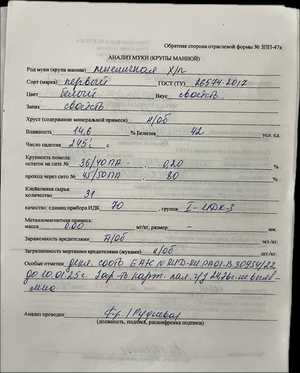 Обратная сторона отраслевой формы № ЗПП-47а
АНАЛИЗ МУКИ (КРУПЫ МАННОЙ)
Род муки (крупа манная) пшеничная х/п
Сорт (марка) первый ГОСТ (ТУ) 26574-2017
Цвет белый Вкус свойств
Запах свойств
Хруст (содержание минеральной примеси) н/об
Влажность 14,6 % Белизна 42 усл. ед.
Число падения 245 с
Крупность помола:
остаток на сите № 36/40 ПА - 0,20 %
проход через сито № 45/50 ПА 80 %
Клейковина сырая:
количество 31
качество: единиц прибора ИДК 70, группа I-
Металломагнитная примесь:
масса 0,00 мг/кг, размер - мм.
Зараженность вредителями н/об
Загрязненность мертвыми вредителями (жуками) н/об
Особые отметки: декл. соотв. ЕАЭС N RU Д-
до 10.01.25г.
Анализ проведен
(должность, подпись, расшифровка подписи)